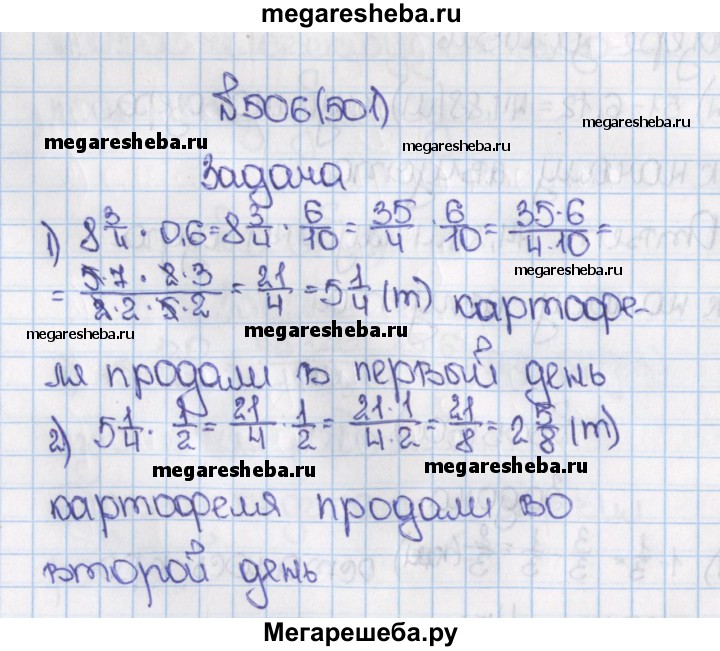 megaresheba.ru
№506(501)
megaresheba.ru megaresheba.ru megaresheba.ru
Задача
1) 8 3/4 · 0,6 = 8 3/4 · 6/10 = 35/4 · 6/10 = (35·6)/(4·10) =
megaresheba.ru
= (5·7·2·3)/(2·2·5·2) = 21/4 = 5 1/4 (т) картофе-
megaresheba.ru megaresheba.ru megaresheba.ru
ля продали в первый день
2) 5 1/4 · 1/2 = 21/4 · 1/2 = (21·1)/(4·2) = 21/8 = 2 5/8 (т)
megaresheba.ru megaresheba.ru
картофеля продали во
второй день
Мегарешеба.ру